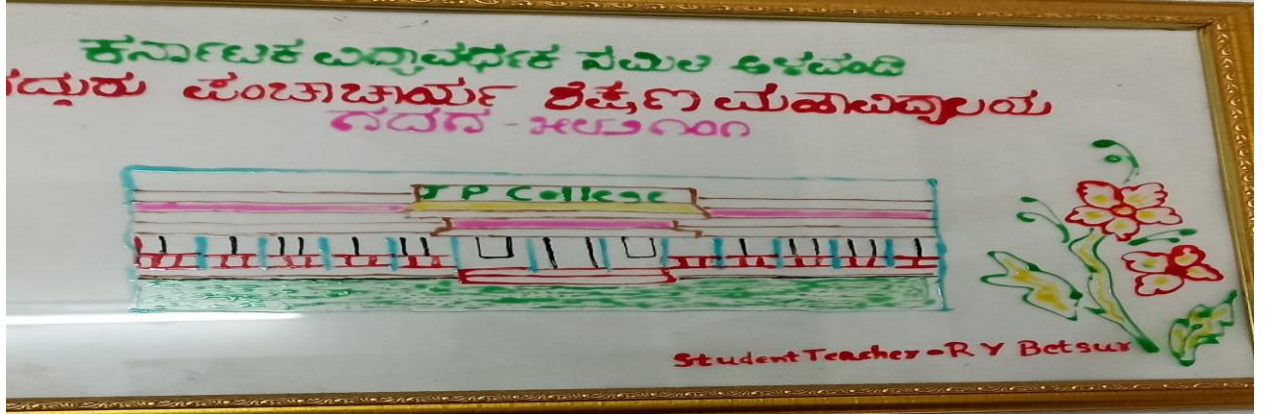 ಕರ್ನಾಟಕ ವಿದ್ಯಾವರ್ಧಕ ಸಮಿತಿ ಅಳವಂಡಿ
ದ್ಗುರು ಪಂಚಾಚಾರ್ಯ ಶಿಕ್ಷಣ ಮಹಾವಿದ್ಯಾಲಯ
ಗದಗ - ೫೮೨೧೦೧
J P College
Student Teacher - R Y Betsur